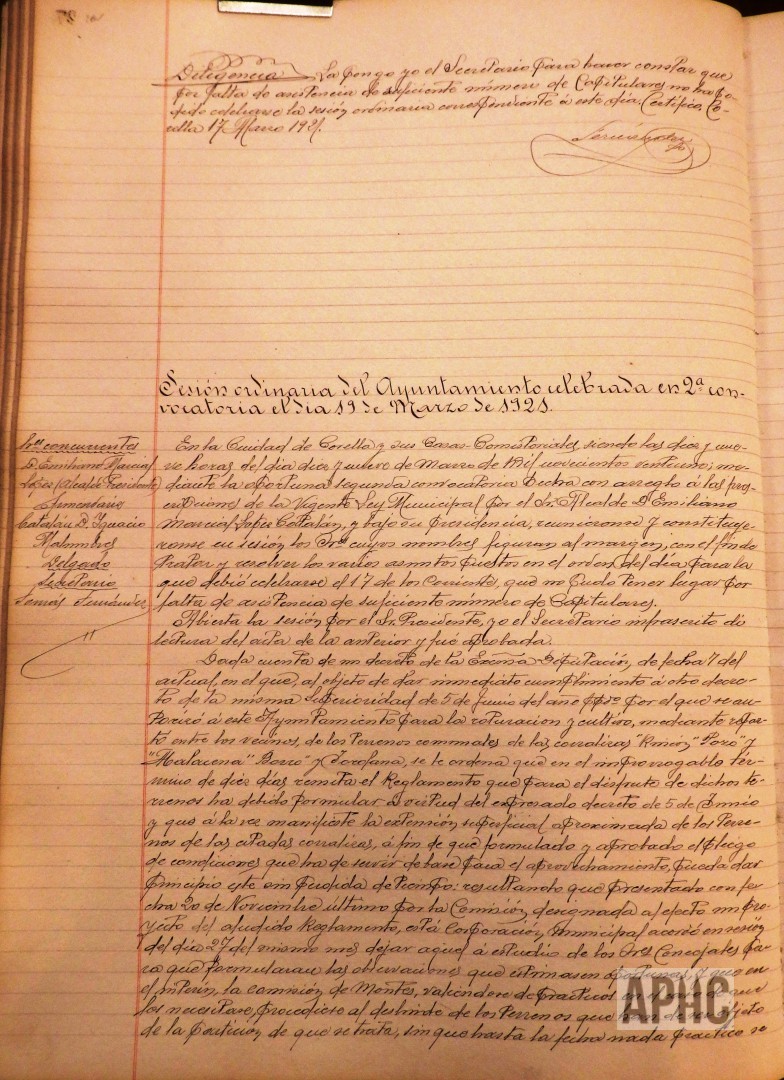 Diligencia La pongo yo el Secretario para hacer constar que
por falta de asistencia de suficiente número de Capitulares no ha po-
dido celebrarse la sesión ordinaria correspondiente á este día. Certifico. Co-
rella 17 Marzo 1921.
Sesión ordinaria del Ayuntamiento celebrada en 2ª con-
vocatoria el día 19 de Marzo de 1921.
Sres concurrentes
D. Emiliano Marcial
López, Alcalde Presidente
Armendariz
Catalán D. Ignacio
Malumbres
Delgado
Secretario
Tomás Fernández
En la Ciudad de Corella y sus Casas-Comistoriales, siendo las diez y nue-
ve horas del día diez y nueve de Marzo de mil novecientos veintiuno; me-
diante la oportuna segunda convocatoria hecha con arreglo á las pres-
cripciones de la Vigente Ley Municipal por el Sr. Alcalde D. Emiliano
Marcial López Catalán, y bajo su Presidencia, reunieronse y constituye-
ronse en sesión los Sres cuyos nombres figuran al margen, con el fin de
tratar y resolver los varios asuntos puestos en el orden del día para la
que debió celebrarse el 17 de los Corriente, que no pudo tener lugar por
falta de asistencia de suficiente número de Capitulares.
Abierta la sesión por el Sr. Presidente, yo el Secretario infrascrito di
lectura del acta de la anterior y fué aprobada.
Dada cuenta de un decreto de la Excma Diputación, de fecha 7 del
actual, en el que, al objeto de dar inmediato cumplimiento á otro decre-
to de la misma Superioridad de 5 de Junio del año ppdo por el que se au-
torizó á este Ayuntamiento para la roturación y cultivo, mediante repar-
to entre los vecinos, de los terrenos comunales de las corralizas "Rincón" y
"Malacena" y se le ordena que en el improrrogable tér-
mino de diez días remita el Reglamento que para el disfrute de dichos te-
rrenos ha debido formular a virtud del expresado decreto de 5 de Junio
y que á la vez manifieste la extensión superficial aproximada de los terre-
nos de las citadas corralizas, á fin de que formulado y aprobado el pliego
de condiciones que ha de servir de base para el aprovechamiento, pueda dar
principio este sin pérdida de tiempo: resultando que presentado con fe-
cha 20 de Noviembre último por la Comisión designada al efecto un pro-
yecto del aludido Reglamento, esta Corporación Municipal acordó en sesión
del día 27 del mismo mes dejar aquel á estudio de los Sres Concejales pa-
ra que formularan las observaciones que estimasen oportunas, y que en
el interín, la comisión de Montes, valiendose de prácticos
los necesitase, procediese al deslinde de los terrenos que objeto
de la petición de que se trata, sin que hasta la fecha nada práctico se
APHC